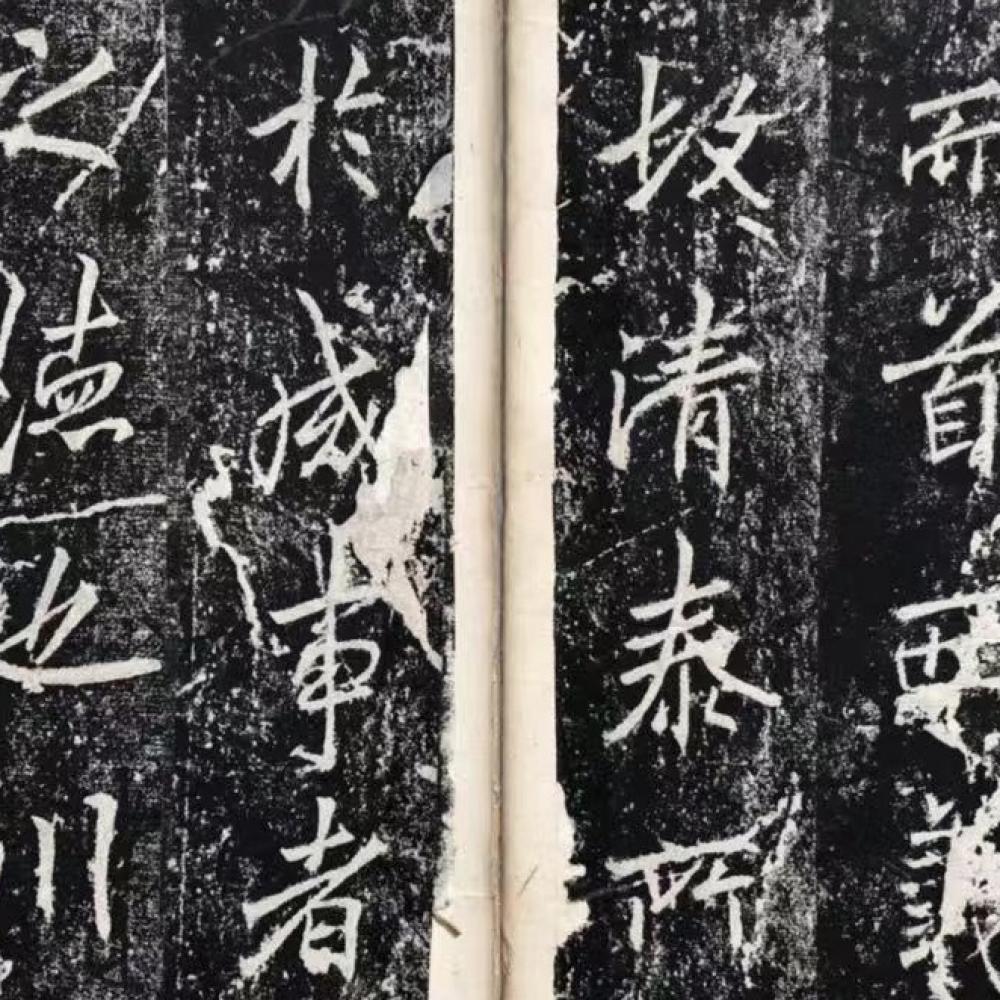 而首西義
故清泰所
於成事者
之德也川